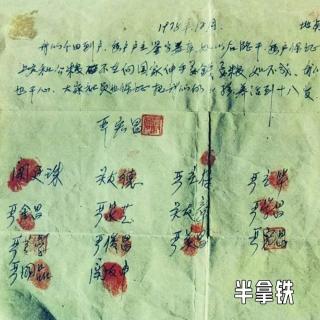 1978年12月 地
我们分田到户，每户户主签字盖章，如以后能干，每户保证
上交和公粮，不在向国家伸手要钱要粮，如不成，我
也干心，大家社员也保证把我们的小孩养活到十八岁。
严宏昌
关廷珠 关友德 严立符 严立华
严金昌 严家芝 关友章 严学昌
严俊昌 严美昌 严宏昌
严国品 关友申
半拿铁